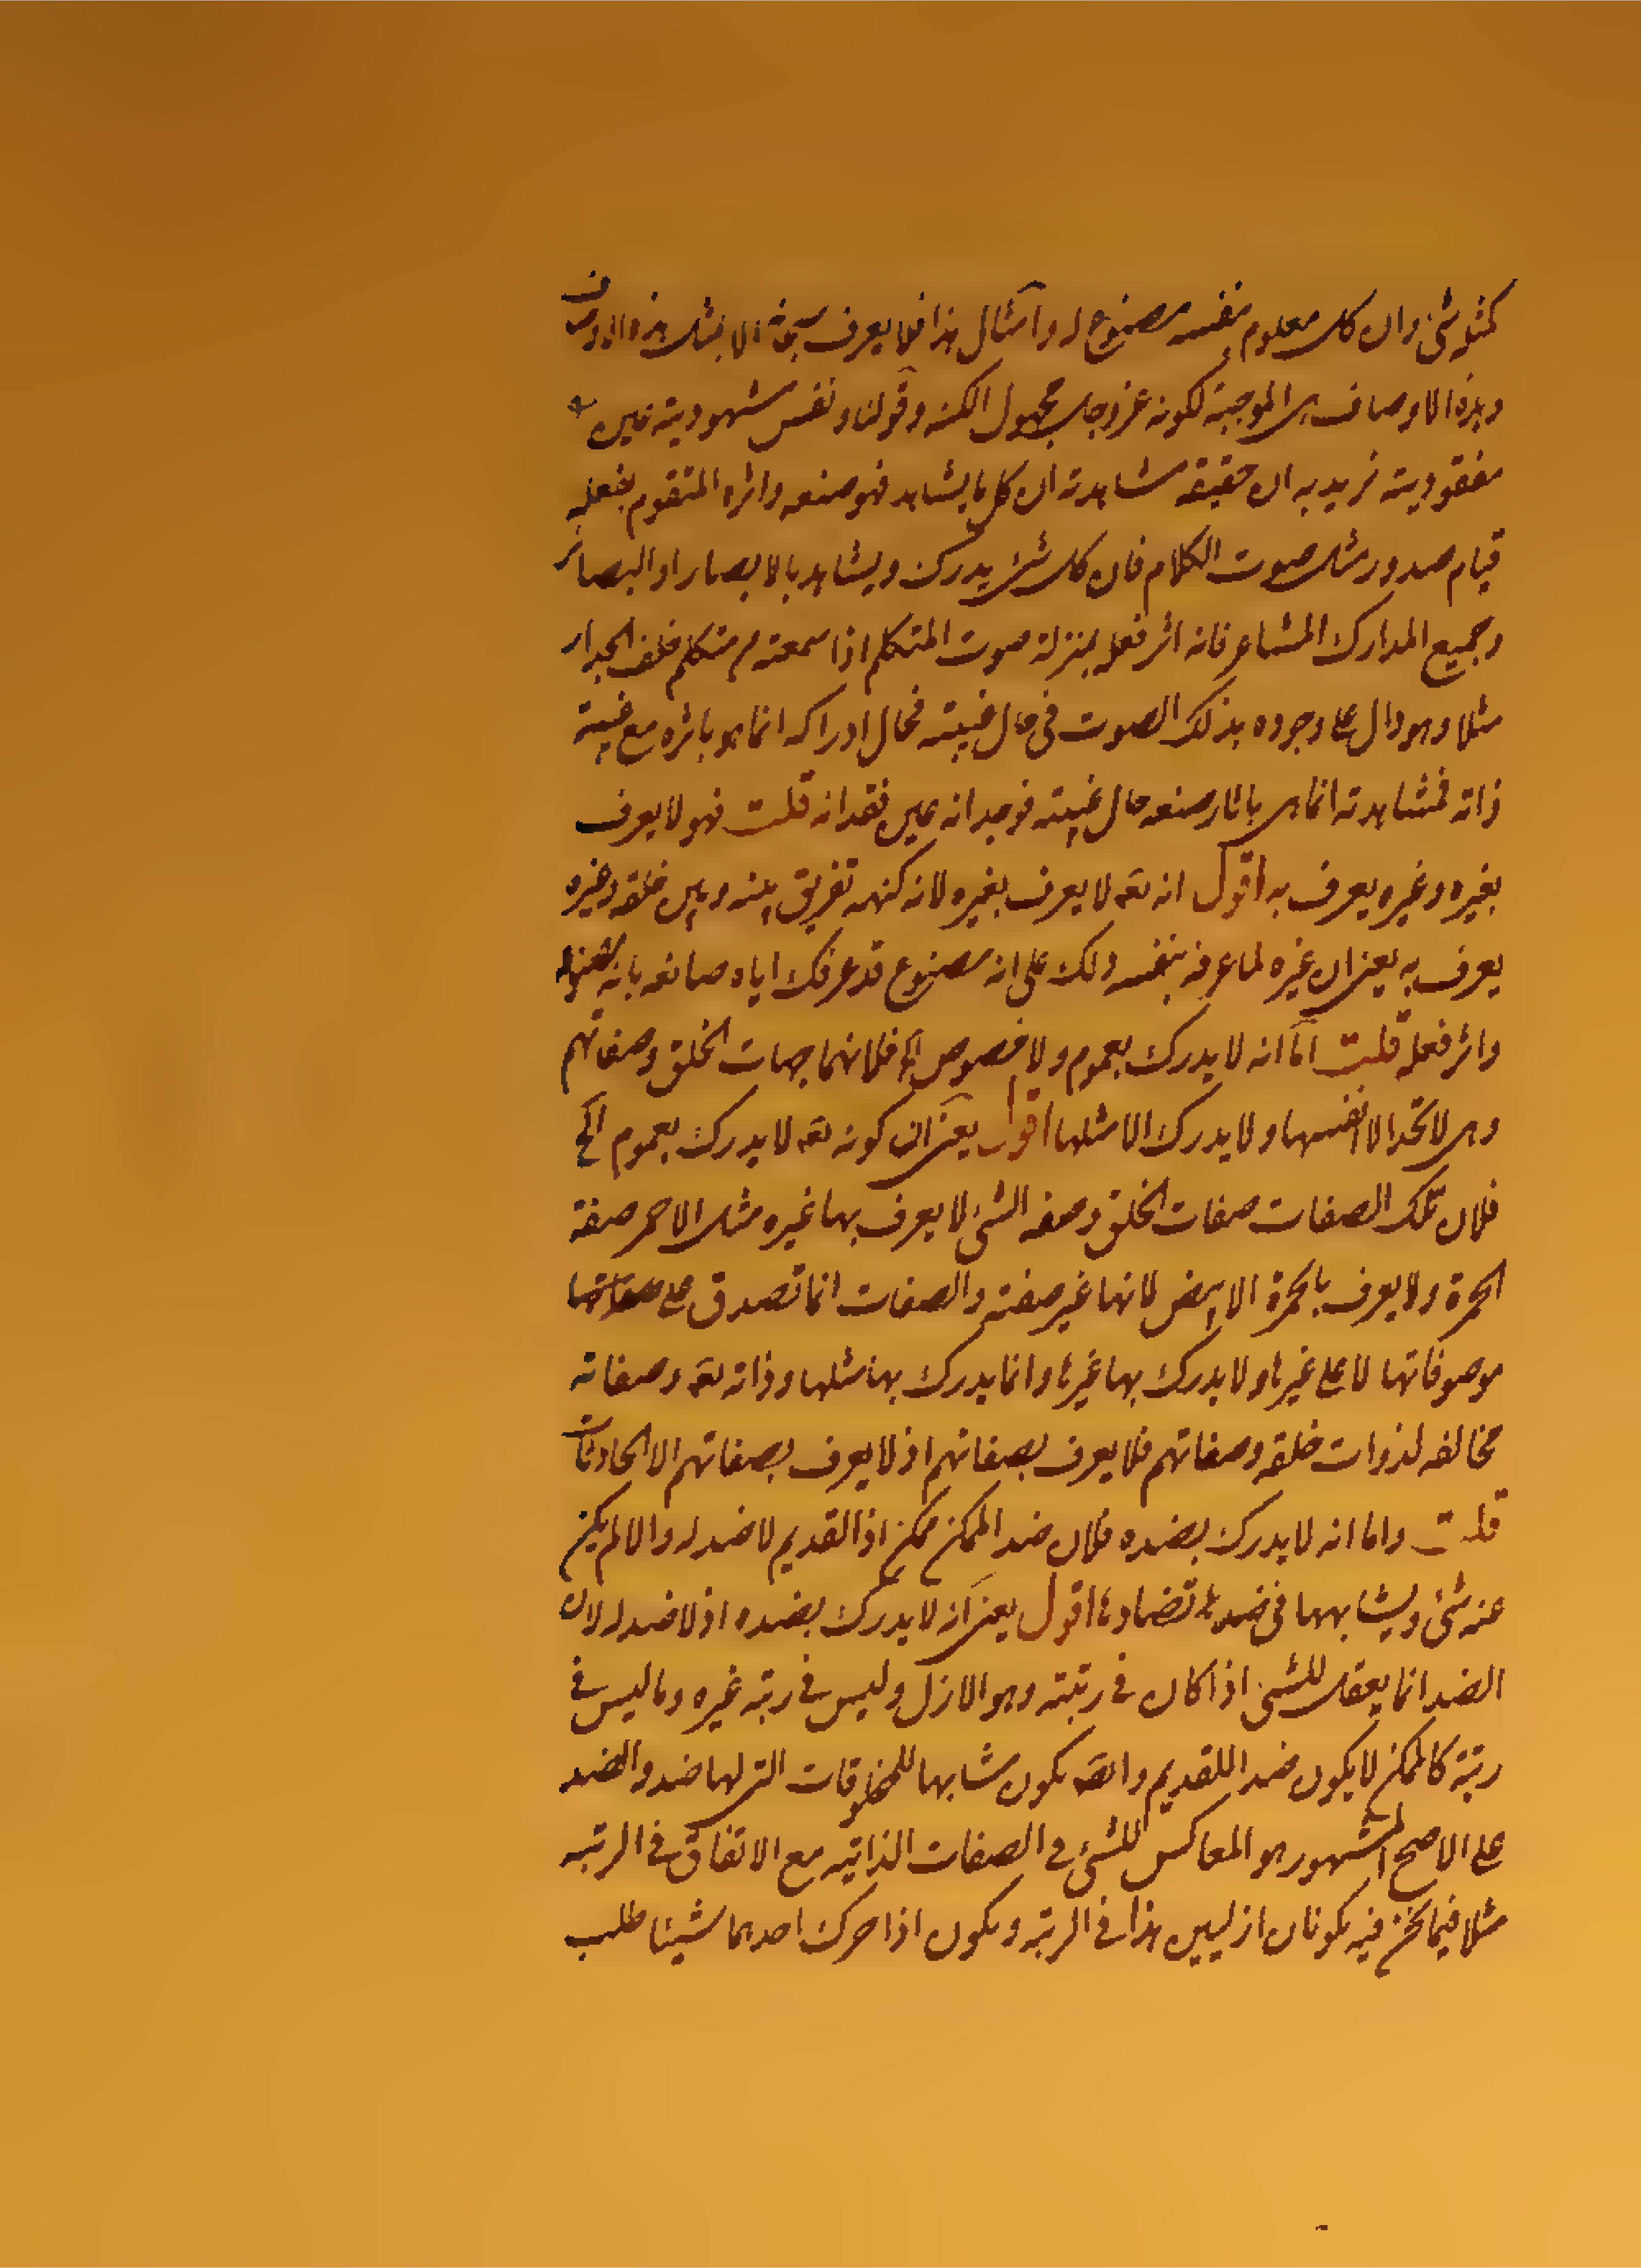 كمثله شئ وان كل معلوم بنفسه مصنوع له وامثال هذا فلا يعرف سبحانه الا بمثل هذه الاوصاف
وهذه الاوصاف هى الموجبة لكونه عز وجل مجهول الكنه وقولنا ونفس مشهوديته عين
مفقوديته نريد به ان حقيقة مشاهدته ان كل ما يشاهد فهو صنعه واثره المتقوم بفعله
قيام صدور مثل صوت الكلام فان كل شئ يدرك ويشاهد بالابصار او البصائر
وجميع المدارك المشاعر فانه اثر فعله بمنزلة صوت المتكلم اذا سمعته من متكلم خلف الجدار
مثلا وهو دال على وجوده بذلك الصوت فى حال غيبته فحال ادراكه انما هو باثره مع غيبة
ذاته فمشاهدته انما هى باثار صنعه حال غيبته فوجدانه عين فقدانه قلت فهو لا يعرف
بغيره وغيره يعرف به اقول انه تعه لا يعرف بغيره لانه كنهه تفريق بينه وبين خلقه وغيره
يعرف به يعنى ان غيره لما عرفه بنفسه دلك على انه مصنوع قد عرفك اياه صانعه بانه
واثر فعله قلت اما انه لا يدرك بعموم ولا خصوص الخ فلانهما جهات الخلق وصفاتهم
وهى لا تحد الا انفسها ولا يدرك الا مثلها اقول يعنى ان كونه تعه لا يدرك بعموم الخ
فلان تلك الصفات صفات الخلق وصفه الشئ لا يعرف بها غيره مثل الاحمر صفة
الحمرة ولا يعرف بالحمرة الابيض لانها غير صفته والصفات انما تصدق على صفاتها
موصوفاتها لا على غيرها ولا يدرك بها غيرها وانما يدرك بها مثلها وذاته تعه وصفاته
مخالفه لذوات خلقه وصفاتهم فلا يعرف بصفاتهم اذ لا يعرف بصفاتهم الا الحادثات
قلت واما انه لا يدرك بضده فلان ضد الممكن ممكن اذ القديم لا ضد له والا لم يكن
عنه شئ ويشابهها فى ضديه تضادها اقول يعنى انه لا يدرك بضده اذ لا ضد له لان
الضد انما يعقل للشئ اذا كان فى رتبته وهو الازل وليس فى رتبه غيره وما ليس فى
رتبة كالممكن لا يكون ضدا للقديم وايضا يكون مشابها للمخلوقات التى لها ضد والضد
على الاصح المشهور هو المعاكس للشئ فى الصفات الذاتيه مع الاتفاق فى الرتبه
مثلا فيما نحن فيه يكونان ازليين هذا فى الرتبه ويكون اذا حرك احدهما شيئا طلب